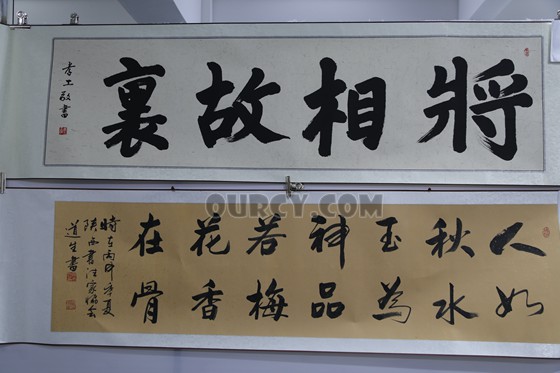 將相故裏
敬書
OURCY.COM
人如
秋水
玉為
神品
若梅
花香
在骨
時在丙申年夏
陝西書法家協会
道生書